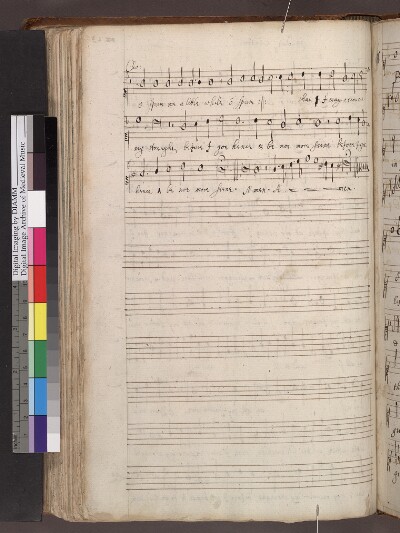 Cho:
o spare me a litle while o spare :||: that I may recover
my strenght, before I goe hence & be noe more seene before I goe
hence & be noe more seene. Amen. A men.
Digital Imaging by DIAMM
Digital Image Archive of Medieval Music